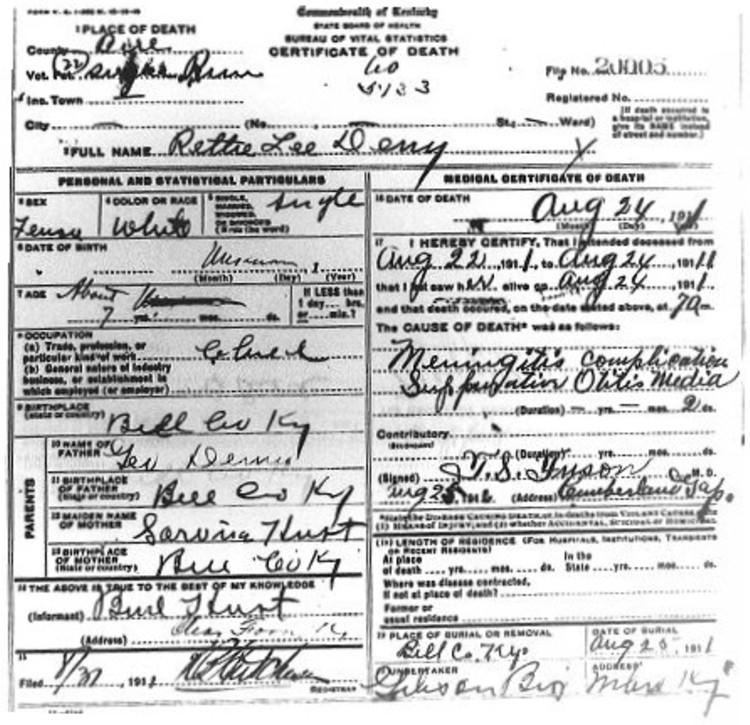 Commonwealth of Kentucky
STATE BOARD OF HEALTH
BUREAU OF VITAL STATISTICS
CERTIFICATE OF DEATH
1 PLACE OF DEATH
County
Vot. Pct. (22) Run
Inc. Town
60
5133
File No. 20005
Registered No.
City (No. St. Ward)
(If death occurred in a hospital or institution, give its NAME instead of street and number.)
2 FULL NAME Rettie Lee Deny
PERSONAL AND STATISTICAL PARTICULARS
3 SEX
4 COLOR OR RACE White
5 SINGLE, MARRIED, WIDOWED OR DIVORCED (Write the word) Single
6 DATE OF BIRTH
(Month) (Day) 1 (Year)
7 AGE About
7 yrs. mos. ds.
If LESS than 1 day hrs. or min.?
8 OCCUPATION
(a) Trade, profession, or particular kind of work
(b) General nature of industry business, or establishment in which employed (or employer)
9 BIRTHPLACE
(State or country) Bell Co Ky
PARENTS
10 NAME OF FATHER Geo
11 BIRTHPLACE OF FATHER (State or country) Bell Co Ky
12 MAIDEN NAME OF MOTHER Sarvina Hurst
13 BIRTHPLACE OF MOTHER (State or country) Bell Co Ky
14 THE ABOVE IS TRUE TO THE BEST OF MY KNOWLEDGE
(Informant) Hurst
(Address)
15
Filed 191
REGISTRAR
MEDICAL CERTIFICATE OF DEATH
16 DATE OF DEATH
Aug 24 1911
(Month) (Day) (Year)
17 I HEREBY CERTIFY, That I attended deceased from
Aug 22 1911, to Aug 24, 1911
that I last saw her alive on Aug 24 1911
and that death occurred, on the date stated above, at 7 a m.
The CAUSE OF DEATH* was as follows:
Meningitis complication
Suppurative Otitis Media
(Duration) yrs. mos. 2 ds.
Contributory
(SECONDARY)
(Duration) yrs. mos. ds.
(Signed) T. S. Tyson M. D.
Aug 25 191 (Address) Cumberland Gap.
*State the DISEASE CAUSING DEATH, or, in deaths from VIOLENT CAUSES state (1) MEANS OF INJURY, and (2) whether ACCIDENTAL, SUICIDAL OR HOMICIDAL
(18) LENGTH OF RESIDENCE (FOR HOSPITALS, INSTITUTIONS, TRANSIENTS OR RECENT RESIDENTS)
At place of death yrs. mos. ds. In the State yrs. mos. ds.
Where was disease contracted, if not at place of death?
Former or usual residence
19 PLACE OF BURIAL OR REMOVAL
Bell Co. Ky.
DATE OF BURIAL
Aug 25, 1911
UNDERTAKER
Gibson Bros
ADDRESS
Ky